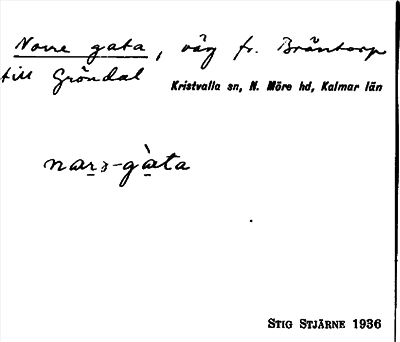 Norre gata, väg fr. Bräntorp
till Gröndal
Kristvalla sn, N. Möre hd, Kalmar län
nar̲ɜ-gàta
STIG STJÄRNE 1936